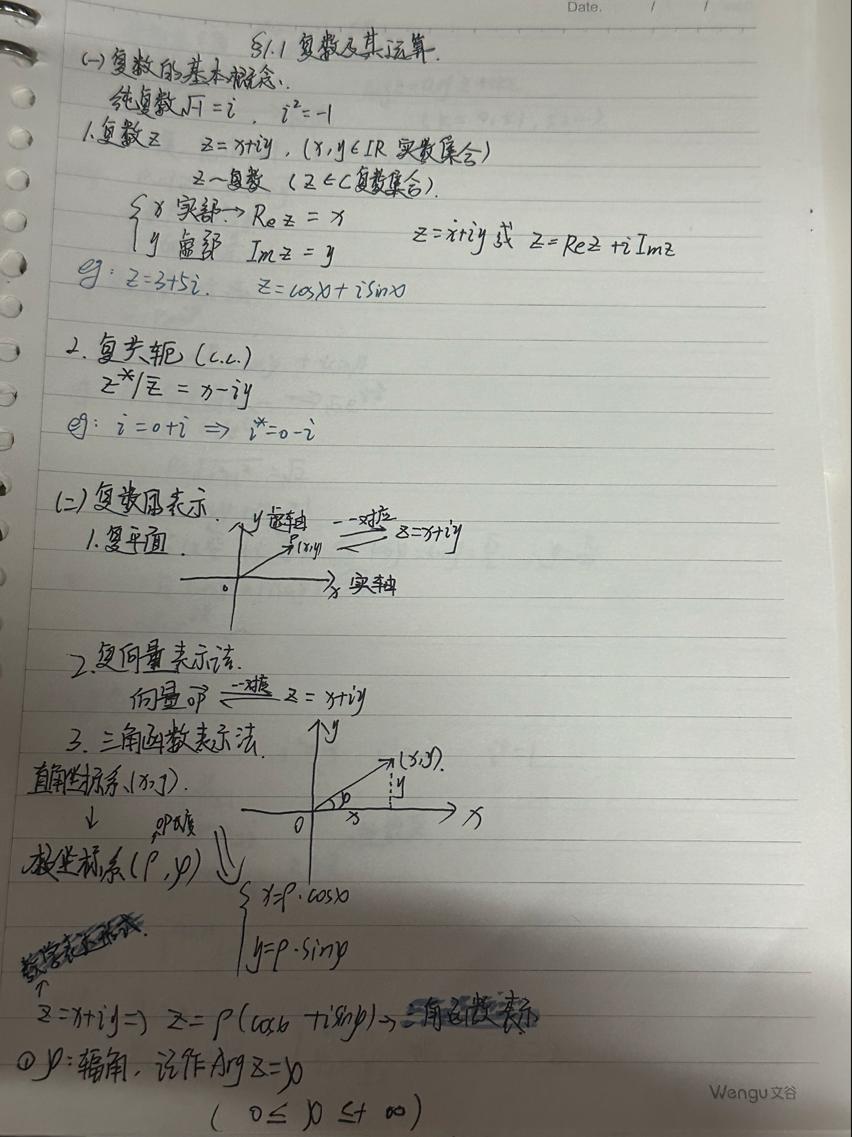 Date. / /
§1.1 复数及其运算.
(一) 复数的基本概念.
纯复数√-1 = i , i² = -1
1. 复数z z = x+iy , (x, y ∈ IR 实数集合)
z — 复数 ( z ∈ C 复数集合).
{ x 实部 → Re z = x
y 虚部 Im z = y
z = x+iy 或 z = Re z + i Im z
eg: z = 3+5i. z = cosφ + i sinφ
2. 复共轭 (c.c.)
z*/z̄ = x-iy
eg: i = 0+i ⇒ i* = 0-i
(二) 复数的表示.
1. 复平面.
y 虚轴
P(x,y)
一一对应
z = x+iy
0
x 实轴
2. 复向量表示法.
向量OP 一一对应 z = x+iy
3. 三角函数表示法.
y
(x,y).
y
φ
0 x x
直角坐标系(x,y).
↓
OP长度
极坐标系(ρ, φ)
{ x = ρ·cosφ
y = ρ·sinφ
数学表达形式.
↑
z = x+iy ⇒ z = ρ(cosφ + i sinφ) → 三角函数表示
① φ: 辐角, 记作 Arg z = φ
( 0 ≤ φ ≤ +∞ )
Wengu 文谷